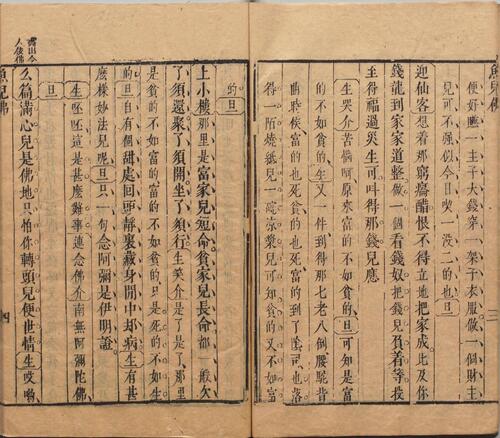 魚兒佛 三
便好噇一主子大錢穿一架子衣服做一個財主
兒可不强似今日喫一沒二的也旦
迎仙客想着那窮癟醋恨不得立地把家成比及你
錢龍到家家道整做一個看錢奴把錢兒負着等我
主得福過災生可叫得那錢兒應
生哭介苦惱呵原來富的不如貧的旦可知是富
的不如貧的生又一件到得那七老八倒腰駝背
曲時候富的也死貧的也死富的到了司也落
得一陌燒紙兒一碗凉漿兒可知貧的又不如富
的旦
上小樓那里是富家兒短命貧家兒長命都一般欠
了須還聚了須開坐了須行生笑介是了是了那里
是貧的不如富的富的不如貧的只是死的不如生
的旦自有個甜處回頭靜裏藏身閒中却病生有甚
麽樣妙法兒呢旦只一句念阿彌是伊明證
生呸呸這是甚麽難事連念佛介南無阿彌陀佛
旦
么篇滿心兒是佛地只怕你轉頭兒便世情生哎喲
露出今
人佞佛
魚兒佛 四